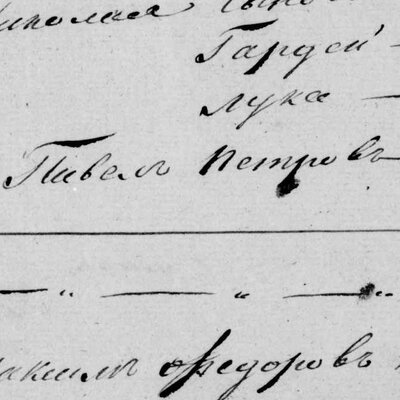 Николая Сыно
Гардей —
Лука —
Павелъ Петровъ —
— „ — „ — „
аксимъ Федоровъ